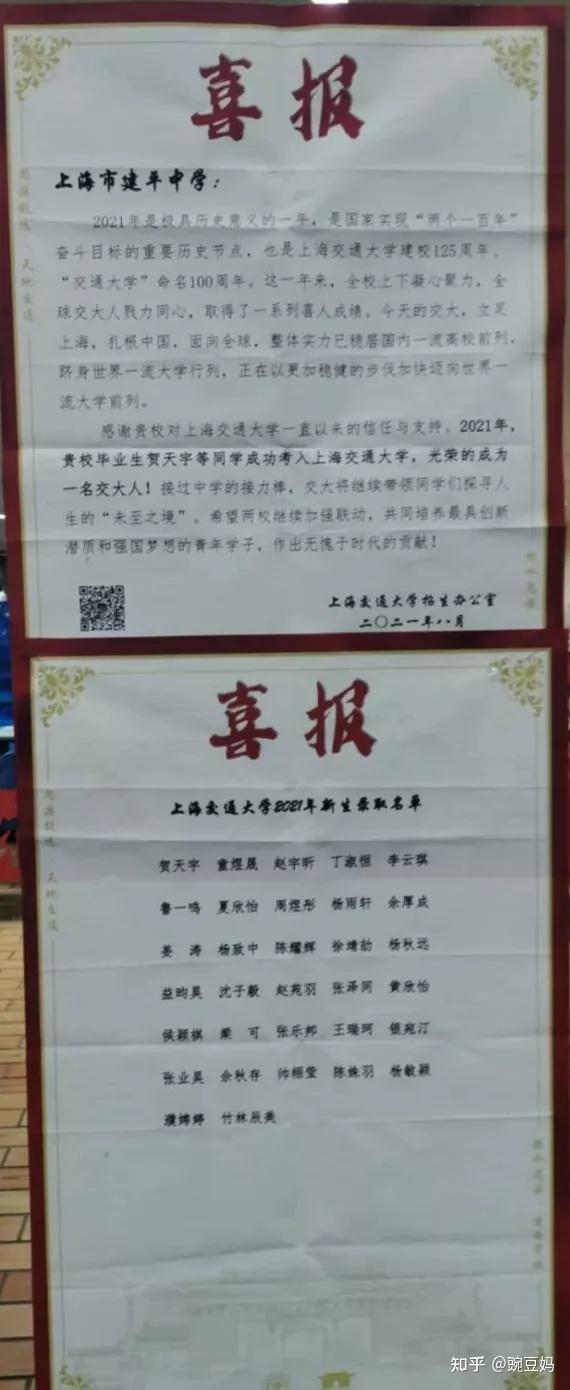 喜报
上海市建平中学：
2021年是极具历史意义的一年，是国家实现“两个一百年”
奋斗目标的重要历史节点，也是上海交通大学建校125周年、
“交通大学”命名100周年。这一年来，全校上下凝心聚力，全
球交大人戮力同心，取得了一系列喜人成绩。今天的交大，立足
上海，扎根中国，面向全球，整体实力已稳居国内一流高校前列，
跻身世界一流大学行列，正在以更加稳健的步伐加快迈向世界一
流大学前列。
感谢贵校对上海交通大学一直以来的信任与支持。2021年，
贵校毕业生贺天宇等同学成功考入上海交通大学，光荣的成为
一名交大人！接过中学的接力棒，交大将继续带领同学们探寻人
生的“未至之境”。希望两校继续加强联动，共同培养最具创新
潜质和强国梦想的青年学子，作出无愧于时代的贡献！
上海交通大学招生办公室
二〇二一年八月
喜报
上海交通大学2021年新生录取名单
贺天宇 童煜晟 赵宇昕 丁淑恒 李云琪
鲁一鸣 夏欣怡 周煜彤 杨雨轩 余厚成
姜涛 杨致中 陈耀辉 徐靖劼 杨秋远
益昀昊 沈子毅 赵苑羽 张泽同 黄欣怡
侯颖祺 梁可 张乐邦 王瑞珂 银宛汀
张业昊 余秋存 帅栩莹 陈姝羽 杨敏颖
濮娉婷 竹林辰美
知乎 @豌豆妈